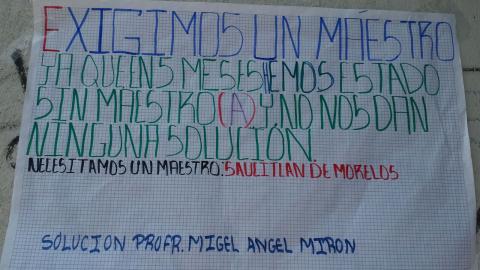 EXIGIMOS UN MAESTRO
YA QUE EN 5 MESES HEMOS ESTADO
SIN MAESTRO(A) Y NO NOS DAN
NINGUNA SOLUCIÓN.
NECESITAMOS UN MAESTRO: SAUCITLAN DE MORELOS
SOLUCION PROFR. MIGEL ANGEL MIRON